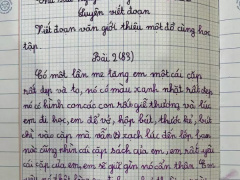 Luyện viết đoạn
Viết đoạn văn giới thiệu một đồ dùng học
tập.
Bài 2 (83)
Có một lần mẹ tặng em một cái cặp
rất đẹp và to, nó có màu xanh nhật rất đẹp
nó có hình con cóc con rất dễ thương và lúc
em đi học, em để vở, hộp bút, thước kẻ, bút
chì vào cặp mà xách lúc đến lớp bạn
nào cũng nhìn cái cặp sách của em, em rất yêu
cái cặp của em, em sẽ giữ gìn nó cẩn thận. Em